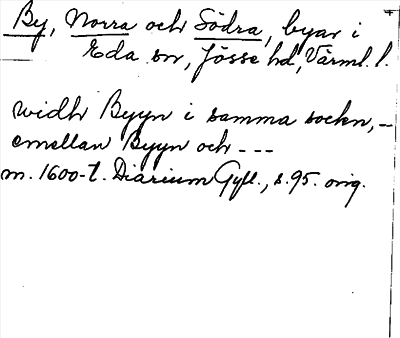 By, Norra och Södra, byar i
Eda sn, Jösse hd, Värml. l.
widh Byyn i samma sockn, –
emellan Byyn och ---
m. 1600-t. Diarium Gyll., s. 95. orig.